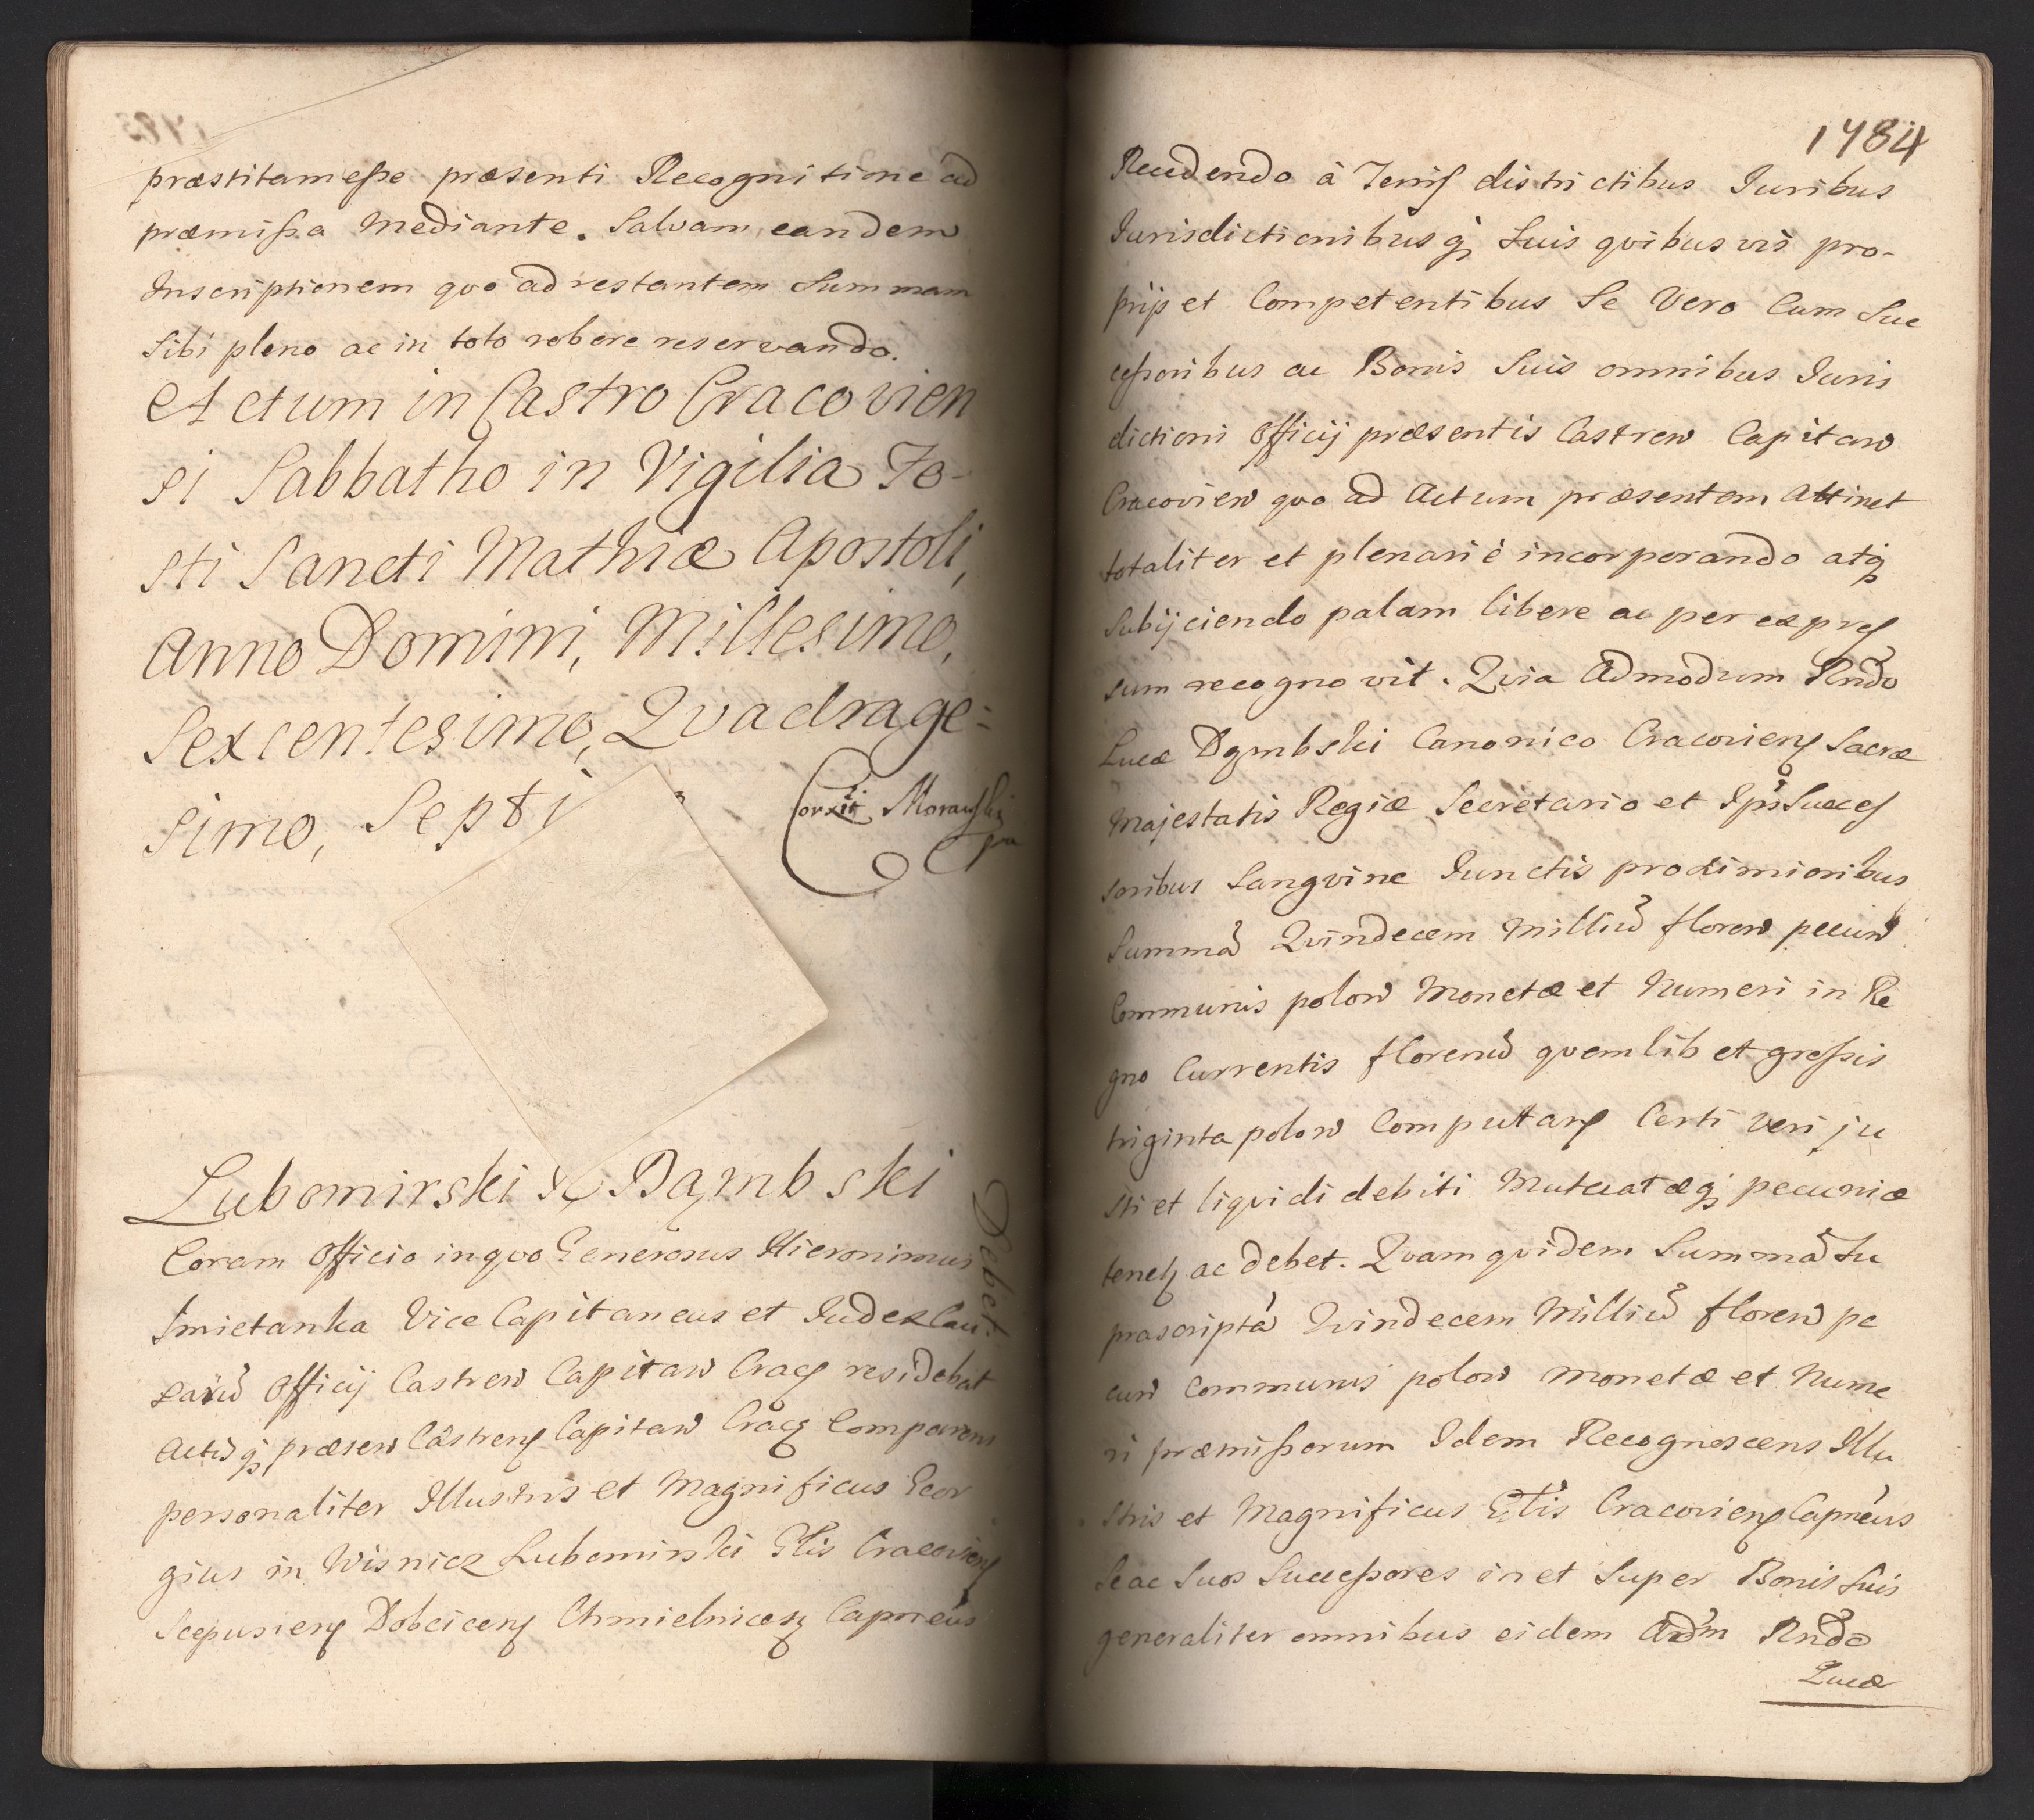 præstitam esse præsenti Recognitione ad
præmissa Mediante. Salvam eandem
Inscriptionem quo ad restantem Summam
Sibi pleno ac in toto robore reservando.
Actum in Castro Cracovien
si Sabbatho in Vigilia Fe-
sti Sancti Mathiæ Apostoli,
Anno Domini, Millesimo,
Sexcentesimo, Quadrage=
simo, Septi
Corxit Morawski
Lubomirski & Dąmbski
Debet
Coram Officio in quo Generosus Hieronimus
Smietanka Vice Capitaneus et Iudex Cau-
sarũ Officij Castren Capitan Crac residebat
Actisq præsen Castren Capitan Crac Comparens
personaliter Illustris et Magnificus Geor
gius in Wisnicz Lubomirski Gñlis Cracovien
Scepusien Dobcicen Chmielnicen Capneus
1484
Recedendo à Terris districtibus Iuribus
Iurisdictionibusq Suis quibusvis pro-
prijs et Competentibus Se Vero Cum Suc
cessoribus ac Bonis Suis omnibus Juris
dictioni Officij præsentis Castren Capitan
Cracovien quo ad Actum præsentem Attinet
totaliter et plenariè incorporando atq
Subijciendo palam libere ac per expres
sum recognovit. Quia Admodum Rndo
Lucæ Dąmbski Canonico Cracovien Sacræ
Majestatis Regiæ Secretario et Ipsi Succes
soribus Sangvine Iunctis proximioribus
Summã Quindecem Milliũ floren pecun
Communis polon Monetæ et Numeri in Re
gno Currentis florenũ quemlibet grossis
triginta polon Computan Certi veri ju
sti et liquidi debiti Mutuatæq pecuniæ
tenet ac debet. Quam quidem Summã Su
prascriptã Quindecem Milliũ floren pe
cun Communis polon Monetæ et Nume
ri præmissorum Idem Recognoscens Illu
stris et Magnificus Gñlis Cracovien Capneus
Se ac Suos Successores in et Super Bonis Suis
generaliter omnibus eidem Adm Rndo
Lucæ